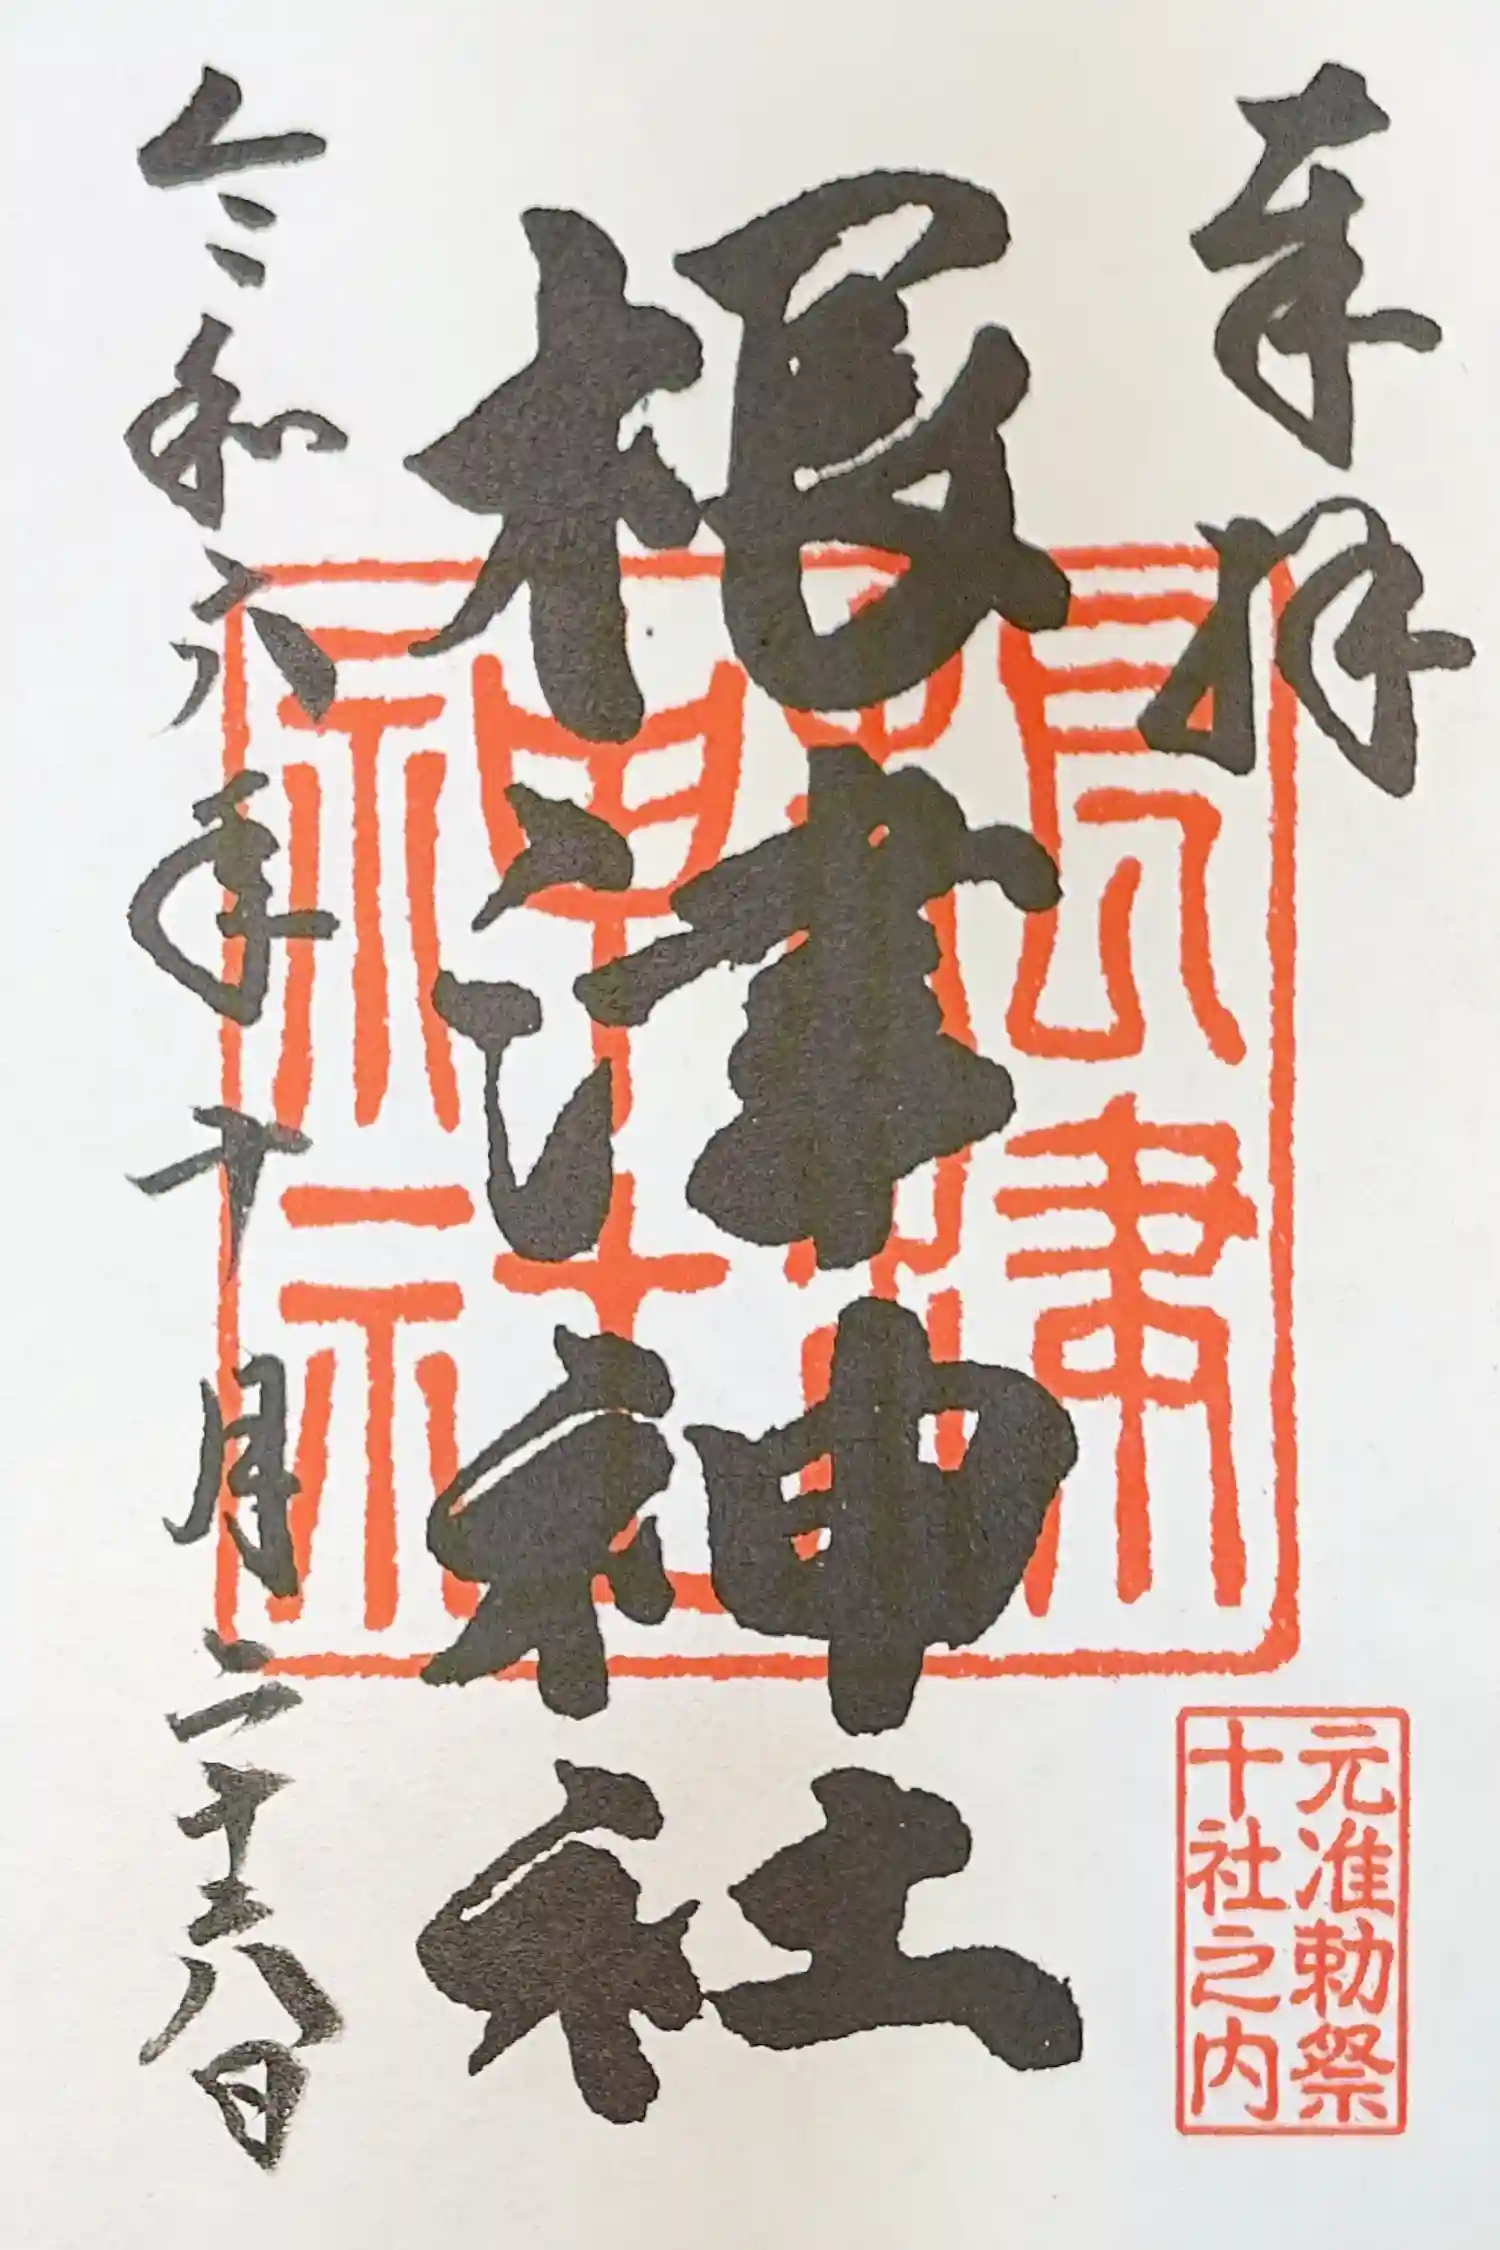 奉拝
根津神社
令和六年十月二十八日
元准勅祭
十社之内